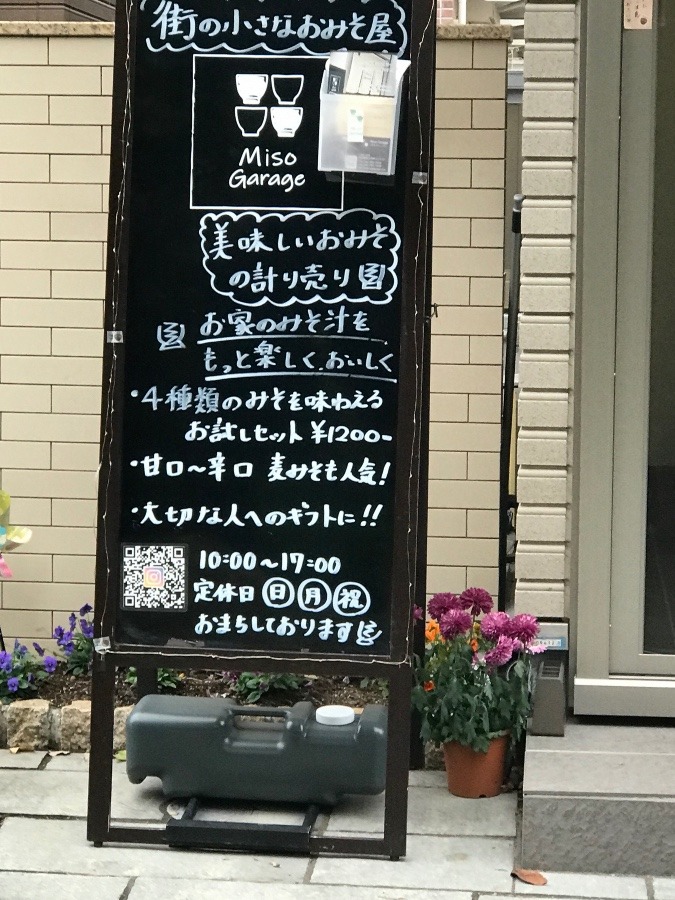 街の小さなおみそ屋
Miso
Garage
美味しいおみそ
の計り売り
お家のみそ汁を
もっと楽しく、おいしく
・4種類のみそを味わえる
お試しセット ¥1200-
・甘口～辛口 麦みそも人気!
・大切な人へのギフトに!!
10:00～17:00
定休日 日 月 祝
おまちしております